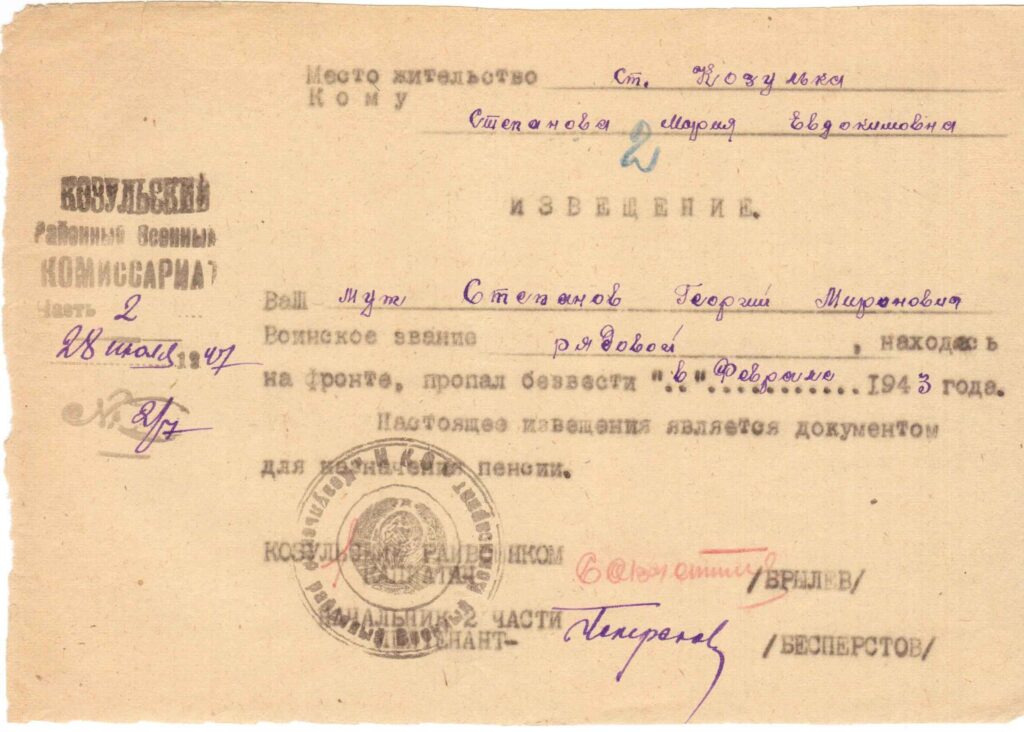 Место жительство ст. Козулька
Кому
Степанова Мария Евдокимовна
2
ИЗВЕЩЕНИЕ.
КОЗУЛЬСКИЙ
Районный Военный
КОМИССАРИАТ
Часть 2
28 июля 1947
№ 2/7
Ваш муж Степанов Георгий Миронович
Воинское звание рядовой, находясь
на фронте, пропал безвести "в" Феврале 1943 года.
Настоящее извещения является документом
для назначения пенсии.
КОЗУЛЬСКИЙ РАЙВОЕНКОМ
КАПИАТАН /БРЫЛЕВ/
НАЧАЛЬНИК 2 ЧАСТИ
ЛЕЙТЕНАНТ- /БЕСПЕРСТОВ/